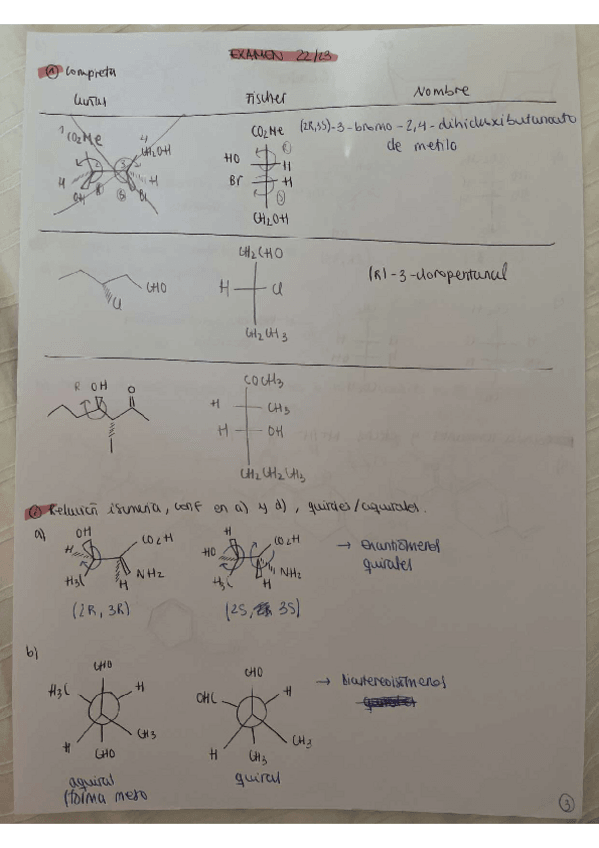 EXAMEN 22/23
① Completa
Cuñas Fischer Nombre
1 CO2Me 4 CH2OH
2 3
H H
OH Br
CO2Me
HO H
Br H
CH2OH
(2R,3S)-3-bromo-2,4-dihidroxibutanoato
de metilo
CHO
Cl
CH2CHO
H Cl
CH2CH3
(R)-3-cloropentanal
R OH O
COCH3
H CH3
H OH
CH2CH2CH3
② Relación isomería, conf en a) y d), quirales/aquirales.
a) OH CO2H
H
H3C H NH2
(2R, 3R)
H CO2H
HO
H3C H NH2
(2S, 3S)
→ Enantiómeros
quirales
b)
CHO
H3C H
H CH3
CHO
aquiral
(forma meso
CHO
OHC H
H CH3
CH3
quiral
→ Diastereoisómeros
3